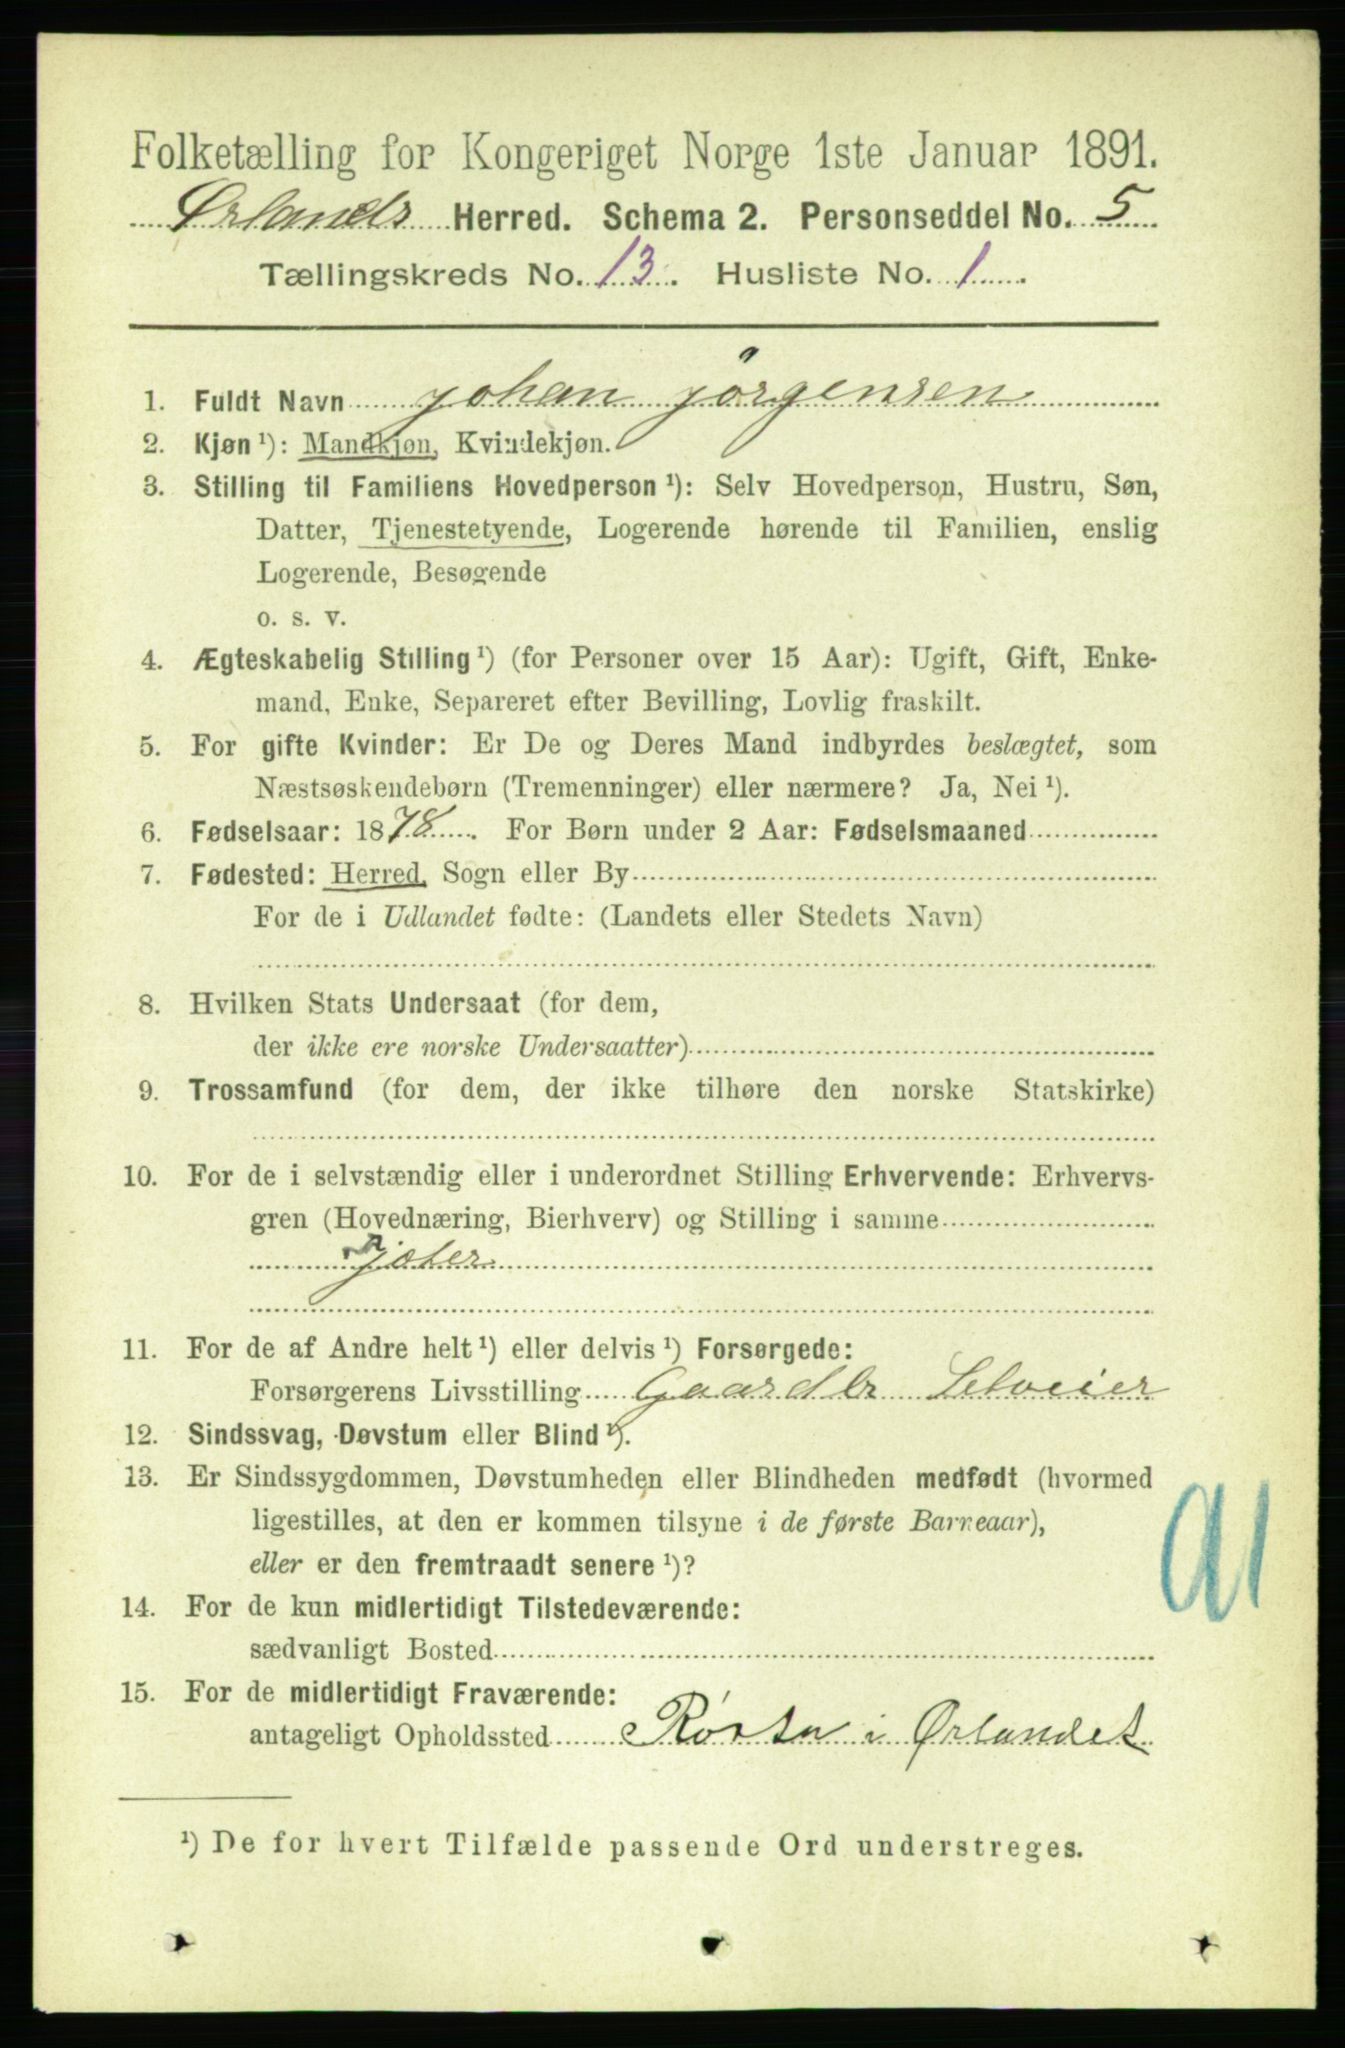 Folketælling for Kongeriget Norge 1ste Januar 1891.
Ørlands Herred. Schema 2. Personseddel No. 5
Tællingskreds No. 13. Husliste No. 1
1. Fuldt Navn Johan Jørgensen
2. Kjøn ¹): Mandkjøn, Kvindekjøn.
3. Stilling til Familiens Hovedperson ¹): Selv Hovedperson, Hustru, Søn,
Datter, Tjenestetyende, Logerende hørende til Familien, enslig
Logerende, Besøgende
o. s. v.
4. Ægteskabelig Stilling ¹) (for Personer over 15 Aar): Ugift, Gift, Enke-
mand, Enke, Separeret efter Bevilling, Lovlig fraskilt.
5. For gifte Kvinder: Er De og Deres Mand indbyrdes beslægtet, som
Næstsøskendebørn (Tremenninger) eller nærmere? Ja, Nei ¹).
6. Fødselsaar: 1878. For Børn under 2 Aar: Fødselsmaaned
7. Fødested: Herred, Sogn eller By
For de i Udlandet fødte: (Landets eller Stedets Navn)
8. Hvilken Stats Undersaat (for dem,
der ikke ere norske Undersaatter)
9. Trossamfund (for dem, der ikke tilhøre den norske Statskirke)
10. For de i selvstændig eller i underordnet Stilling Erhvervende: Erhvervs-
gren (Hovednæring, Bierhverv) og Stilling i samme
Gjæter
11. For de af Andre helt ¹) eller delvis ¹) Forsørgede:
Forsørgerens Livsstilling Gaardbr Selveier
12. Sindssvag, Døvstum eller Blind ¹).
13. Er Sindssygdommen, Døvstumheden eller Blindheden medfødt (hvormed
ligestilles, at den er kommen tilsyne i de første Barneaar),
eller er den fremtraadt senere ¹)?
14. For de kun midlertidigt Tilstedeværende:
sædvanligt Bosted
15. For de midlertidigt Fraværende:
antageligt Opholdssted i Ørlandet
¹) De for hvert Tilfælde passende Ord understreges.